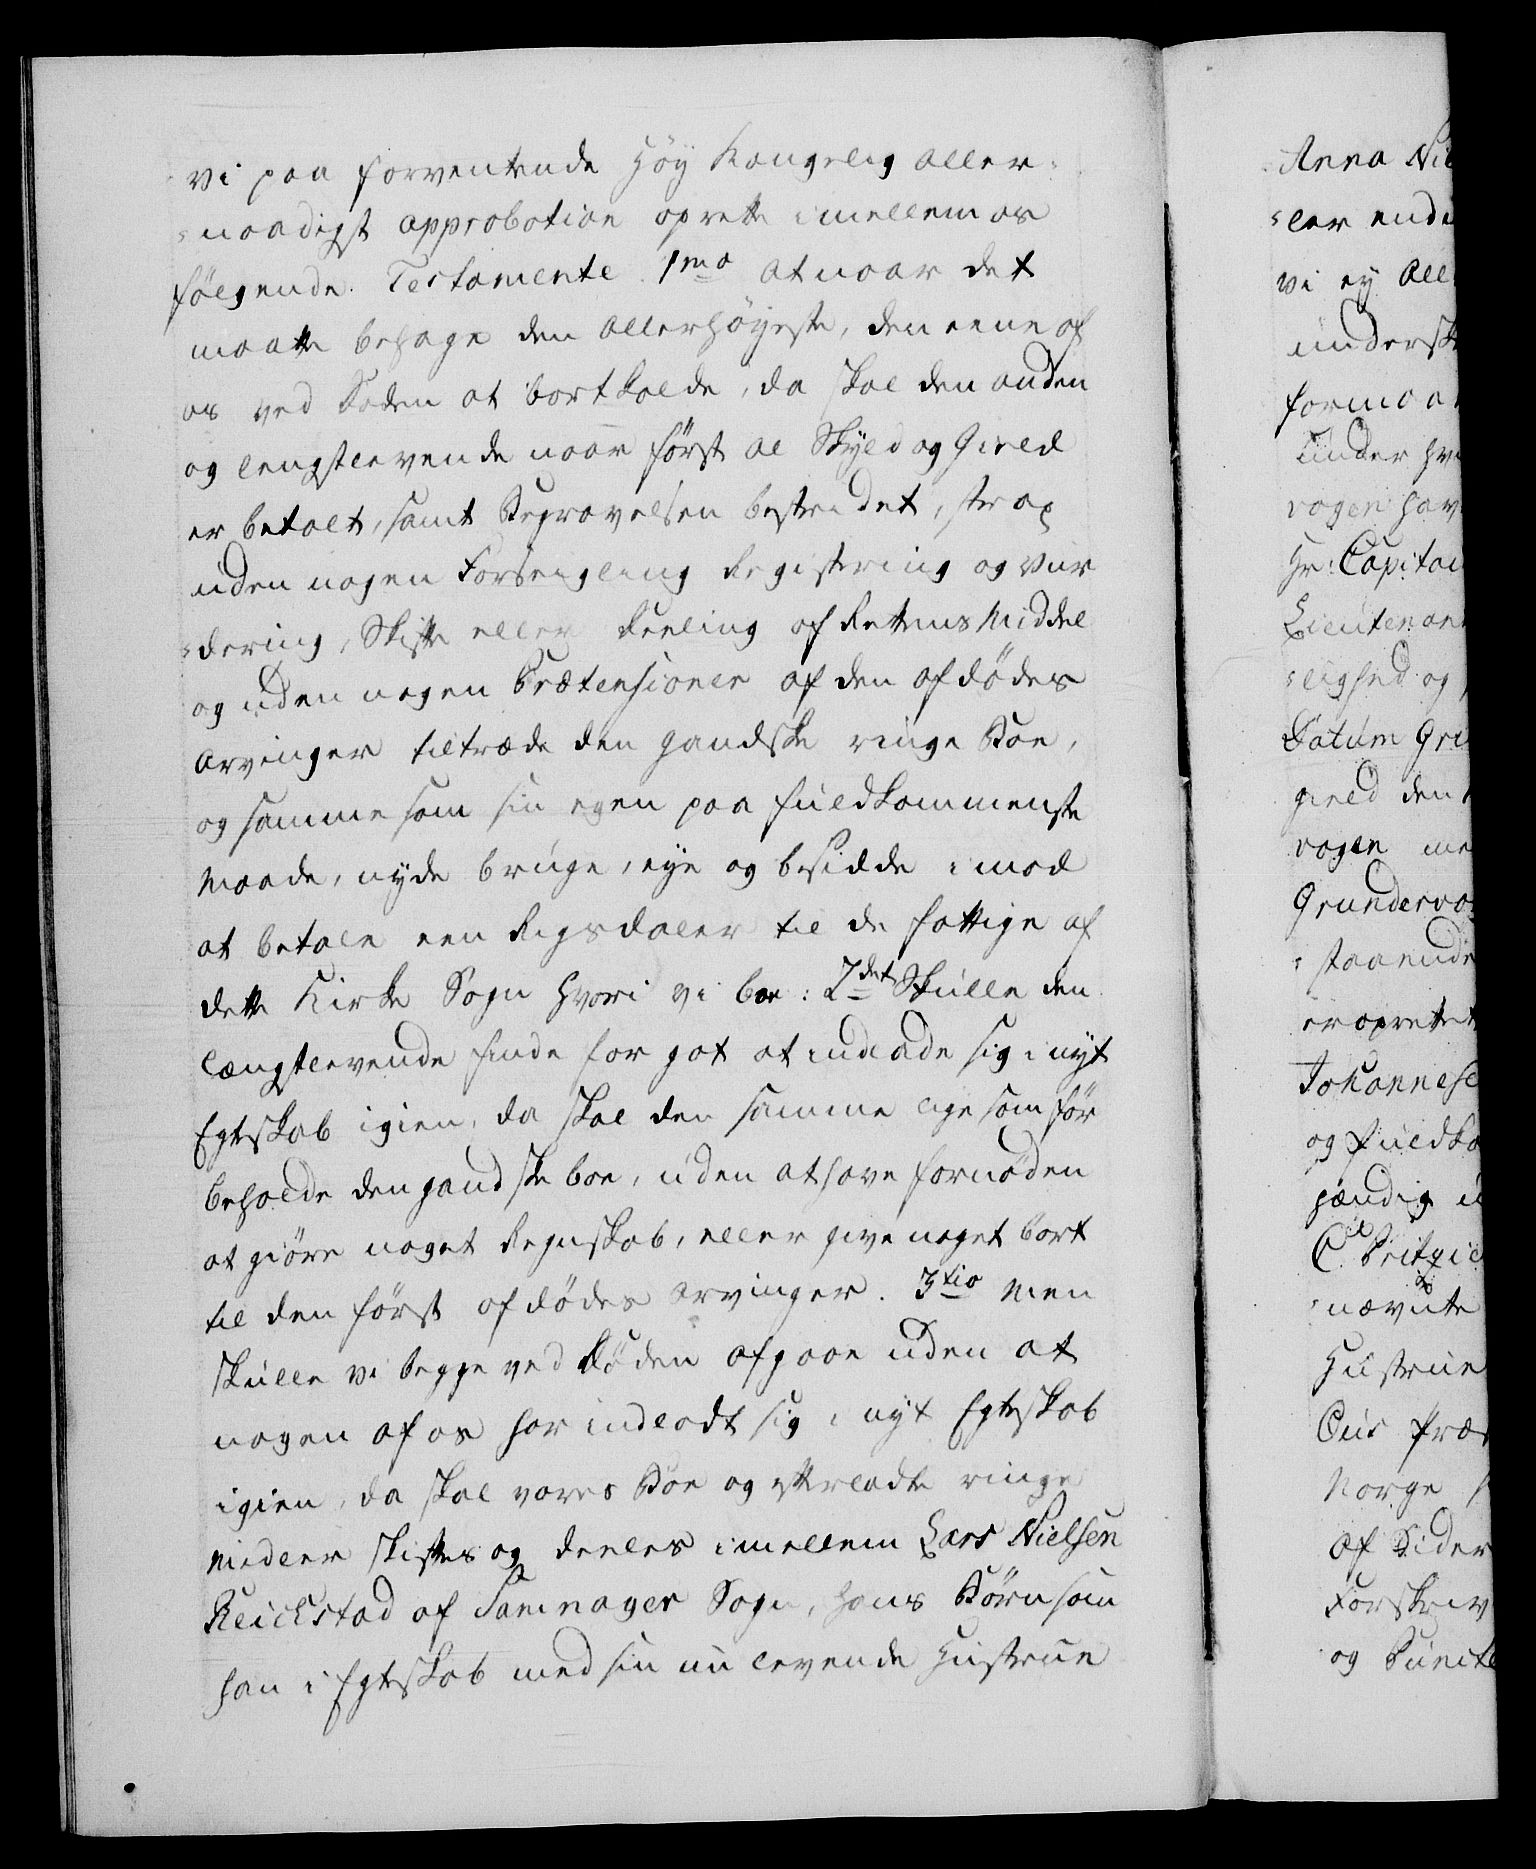 vi paa forventende Høy Kongelig aller-
-naadigst approbation oprette imellem os
følgende Testamente 1mo at naar det
maatte behage den Allerhøyeste, den eene af
os ved Døden at bortkalde, da skal den anden
og lengstlevende naar først al Skyld og Gield
er betalt, samt Begravelsen bestridet, strax
uden nogen Forseigling Registering og Vur
-dering, Skifte eller Deeling af Rettens Middel
og uden nogen Prætensioner af den afdødes
Arvinger tiltræde den gandske ringe Boe,
og samme som sin egen paa fuldkommenste
Maade, nyde bruge, eye og besidde imod
at betale een Rigsdaler til de fattige af
dette Kirke Sogn hvori vi boe: 2det Skulle den
længstlevende finde for got at indlade sig i nyt
Egteskab igien, da skal den samme lige som før
beholde den gandske boe, uden at have fornøden
at giøre noget Regnskab, eller give noget bort
til den først afdødes Arvinger. 3tio Men
skulle vi begge ved Døden afgaae uden at
nogen af os har indladt sig i nyt Egteskab
igien, da skal vores Boe og efterladte ringe
Midler skiftes og deeles imellem Lars Nielsen
Reickstad af Samnager Sogn, hans Børn som
han i Egteskab med sin nu levende Hustrue
Anna Nie
-ler ende
vi ey All
undersk
formaa
under hv
vogen hav
Hr: Capitai
Lieutenant
-lighed og
Datum Gri
gield den
vogen me
Grundervo
-staaende
er oprettet
Johannese
og fuldko
hændig u
C. Britzie
-nævnte
Hustrue
Ous Præ
Norge
af Sider
Forskriv
og Puncte